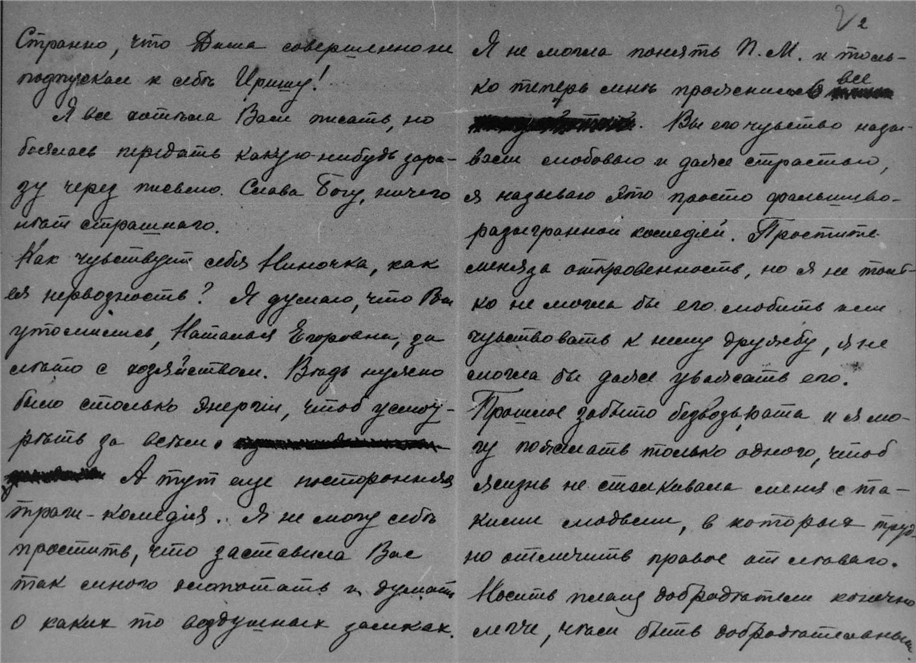 Странно, что Даша совершенно не
подпускает к себѣ Иришу!
Я все хотѣла Вам писать, но
боялась передать какую-нибудь зара-
зу через письмо. Слава Богу, ничего
нѣт страшнаго.
Как чувствует себя Ниночка, как
ея нервозность? Я думаю, что Вы
утомились, Наталья Егоровна, за
лѣто с хозяйством. Вѣдь нужно
было столько энергiи, чтоб усмот-
рѣть за всѣм.
А тут еще посторонняя
траги-комедiя. Я не могу себѣ
простить, что заставила Вас
так много хлопотать и думать
о каких то воздушных замках.
2
Я не могла понять П. М. и толь-
ко теперь мнѣ прояснилось все
. Вы его чувство назы-
ваете любовью и даже страстью,
я называю это просто фальшиво-
разыгранной комедiей. Простите
меня за откровенность, но я не толь-
ко не могла бы его любить или
чувствовать к нему дружбу, я не
могла бы даже уважать его.
Прошлое забыто безвозврата и я мо-
гу пожелать только одного, чтоб
жизнь не сталкивала меня с та-
кими людьми, в которых труд-
но отличить правое от лѣваго.
Носить плащ добродѣтели конечно
легче, чѣм быть добродѣтельным.